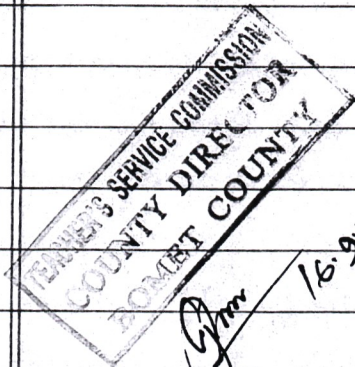 TEACHER'S SERVICE COMMISSION
COUNTY DIRECTOR
BOMET COUNTY
16.9